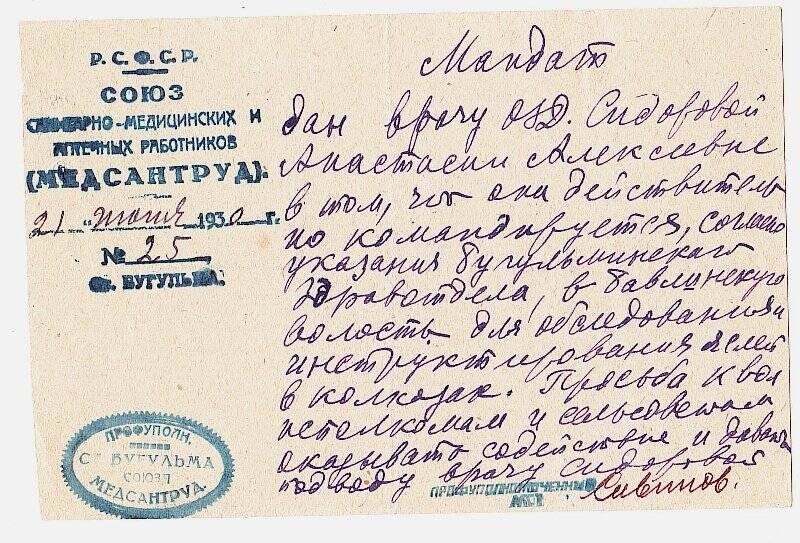 Р.С.Ф.С.Р.
СОЮЗ
САНИТАРНО-МЕДИЦИНСКИХ И
АПТЕЧНЫХ РАБОТНИКОВ
(МЕДСАНТРУД).
21 "июня 1930 г.
№ 25
Ст. БУГУЛЬМА.
Мандат
дан врачу ОЗД. Сидоровой
Анастасии Алексеевне
в том, что она действитель
но командируется, согласно
указания Бугульминского
Здравотдела, в Бавлинскую
волость для обследования и
инструктирования яслей
в колхозах. Просьба к вол
исполкомам и сельсоветам
оказывать содействие и давать
подводу врачу Сидоровой
ПРОФУПОЛНОМОЧЕННЫЙ
МСТ
Савинов.
ПРОФУПОЛН.
Ст БУГУЛЬМА
СОЮЗА
МЕДСАНТРУД.